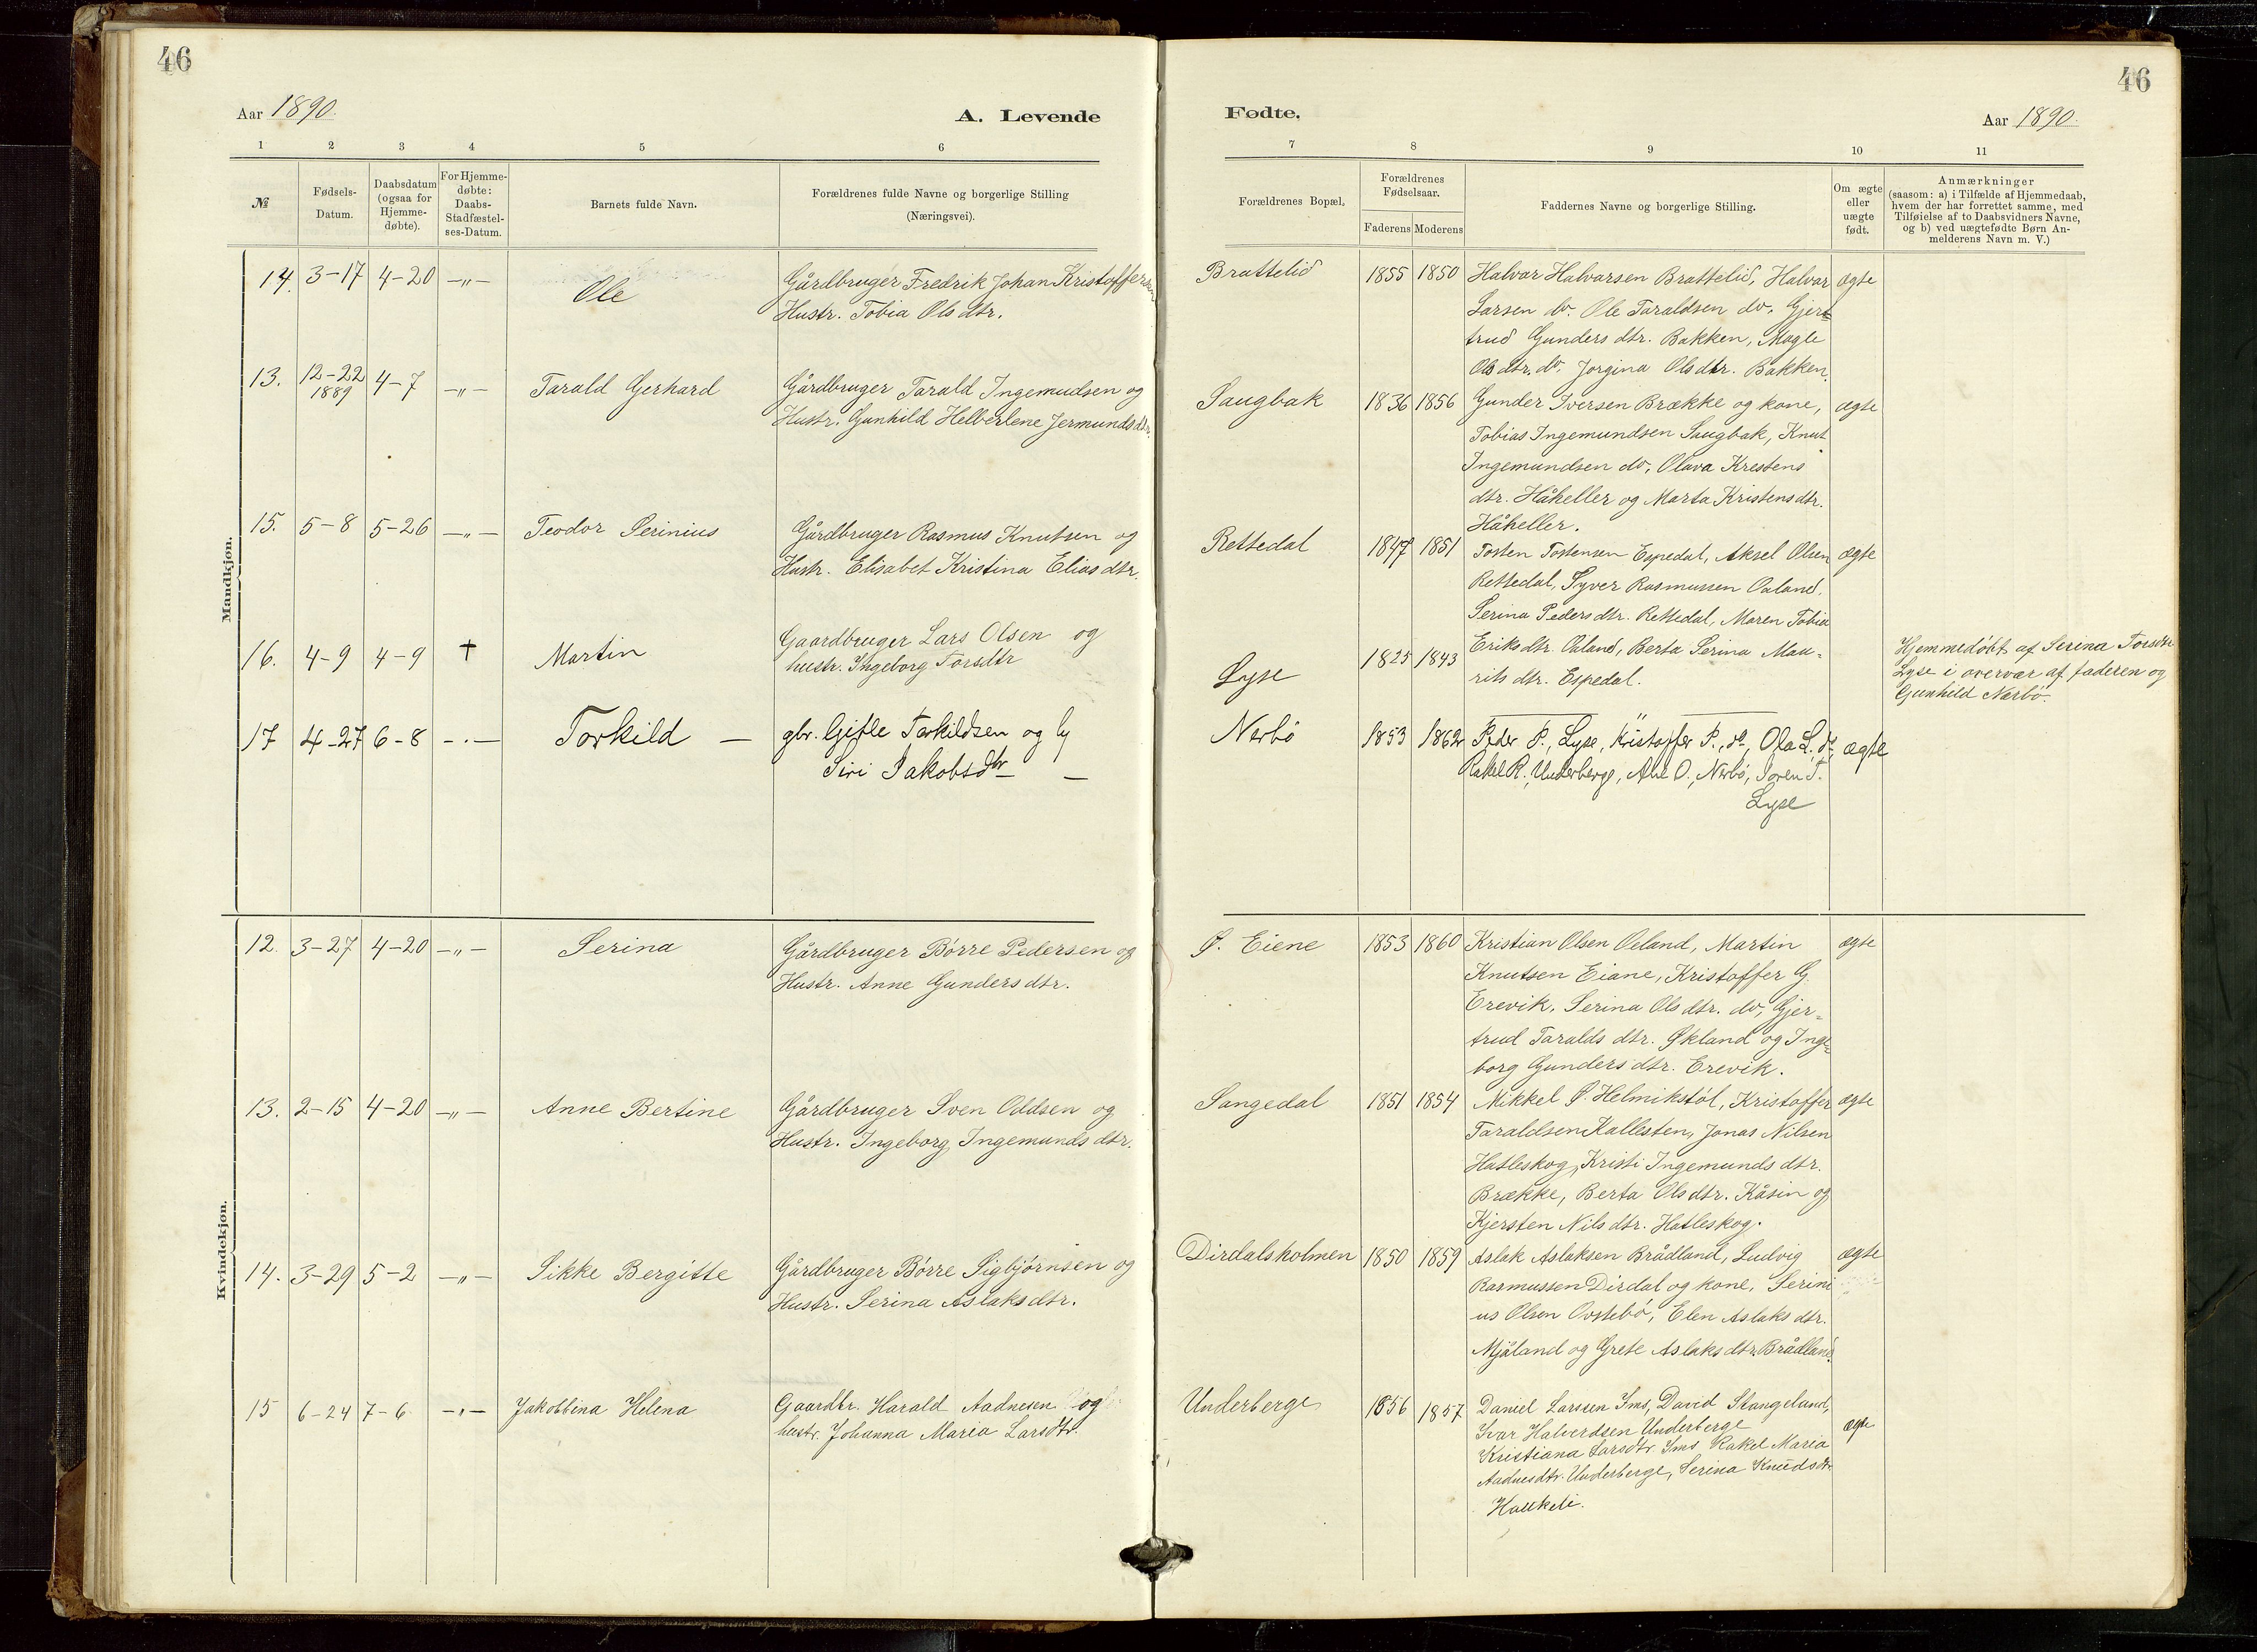 46
46
Aar 1890.
A. Levende
Fødte.
Aar 1890.
1 2 3 4 5 6
7 8 9 10 11
№
Fødsels-
Datum.
Daabsdatum
(ogsaa for
Hjemme-
døbte).
For Hjemme-
døbte:
Daabs-
Stadfæstel-
ses-Datum.
Barnets fulde Navn.
Forældrenes fulde Navne og borgerlige Stilling
(Næringsvei).
Forældrenes Bopæl.
Forældrenes
Fødselsaar.
Faderens Moderens
Faddernes Navne og borgerlige Stilling.
Om ægte
eller
uægte
født.
Anmærkninger
(saasom: a) i Tilfælde af Hjemmedaab,
hvem der har forrettet samme, med
Tilføielse af to Daabsvidners Navne,
og b) ved uægtefødte Børn An-
melderens Navn m. V.)
Mandkjøn.
14. 3-17 4-20 -„- Ole
Gårdbruger Fredrik Johan Kristoffersen
Hustr. Tobia Olsdtr.
Brattelid 1855 1850
Halvar Halvarsen Brattelid, Halvar
Larsen do. Ole Taraldsen do. Gjer-
trud Gundersdtr. Bakken, Magle
Olsdtr. do. Jorgina Olsdtr. Bakken.
ægte
13. 12-22 4-7 -„- Tarald Gerhard
1889
Gårdbruger Tarald Ingemudsen og
Hustr. Gunhild Helberlene Jermundsdtr.
Saugbak 1836 1856
Gunder Iversen Brække og kone,
Tobias Ingemundsen Saugbak, Knut
Ingemundsen do, Olava Krestens
dtr. Håheller og Marta Kristensdtr.
Håheller.
ægte
15. 5-8 5-26 -„- Teodor Serinius
Gårdbruger Rasmus Knutsen og
Hustr. Elisabet Kristina Eliasdtr.
Rettedal 1847 1851
Tosten Tostensen Espedal, Aksel Olsen
Rettedal, Syver Rasmussen Oaland,
Serina Pedersdtr. Rettedal, Maren Tobia
Eriksdtr. Oaland, Berta Serina Mau-
rits dtr. Espedal.
ægte
16. 4-9 4-9 † Martin
Gaardbruger Lars Olsen og
hustr. Ingeborg Torsdtr
Lyse 1825 1843
Hjemmedöbt af Serina Torsdtr
Lyse i overvær af faderen og
Gunhild Nærbö.
17 4-27 6-8 -.- Torkild —
gbr. Gitle Torkildsen og
Siri Jakobsdtr —
Nerbö 1853 1862
Peder P., Lyse, Kristoffer P., do, Ola L. do
Rakel R. Underberge, Ane O., Nerbö, Soren T.
Lyse
ægte
Kvindekjøn.
12. 3-27 4-20 -„- Serina
Gårdbruger Börre Pedersen og
Hustr. Anne Gundersdtr.
Ø. Eiene 1853 1860
Kristian Olsen Oeland, Martin
Knutsen Eiane, Kristoffer G.
Erevik. Serina Olsdtr. do, Gjer-
trud Taralds dtr. Økland og Inge-
borg Gundersdtr. Erevik.
ægte
13. 2-15 4-20 -„- Anne Bertine
Gårdbruger Sven Oddsen og
Hustr. Ingeborg Ingemundsdtr.
Sangedal 1851 1854
Mikkel O. Helmikstöl, Kristoffer
Taraldsen Kallesten, Jonas Nilsen
Hatleskog, Kristi Ingemundsdtr.
Brække, Berta Olsdtr. Kåsin og
Kjersten Nilsdtr. Hatleskog.
ægte
14. 3-29 5-2 -„- Sikke Bergitte
Gårdbruger Börre Sigbjörnsen og
Hustr. Serina Aslaksdtr.
Dirdalsholmen 1850 1859
Aslak Aslaksen Brådland, Ludvig
Rasmussen Dirdal og kone, Serini
us Olsen Ovstebö, Elen Aslaksdtr.
Mjåland og Grete Aslaksdtr. Brådland.
ægte
15 6-24 7-6 -„- Jakobbina Helena
Gaardbr. Harald Aadnesen og
hustr. Johanna Maria Larsdtr.
Underberge 1856 1857
Daniel Larssen Ims, David Skangeland,
Ivar Halvordsen Underberge
Kristiana Larsdtr Ims Rakel Maria
Aadnesdtr. Underberge, Serina Knudsdtr
Haukeli.
ægte